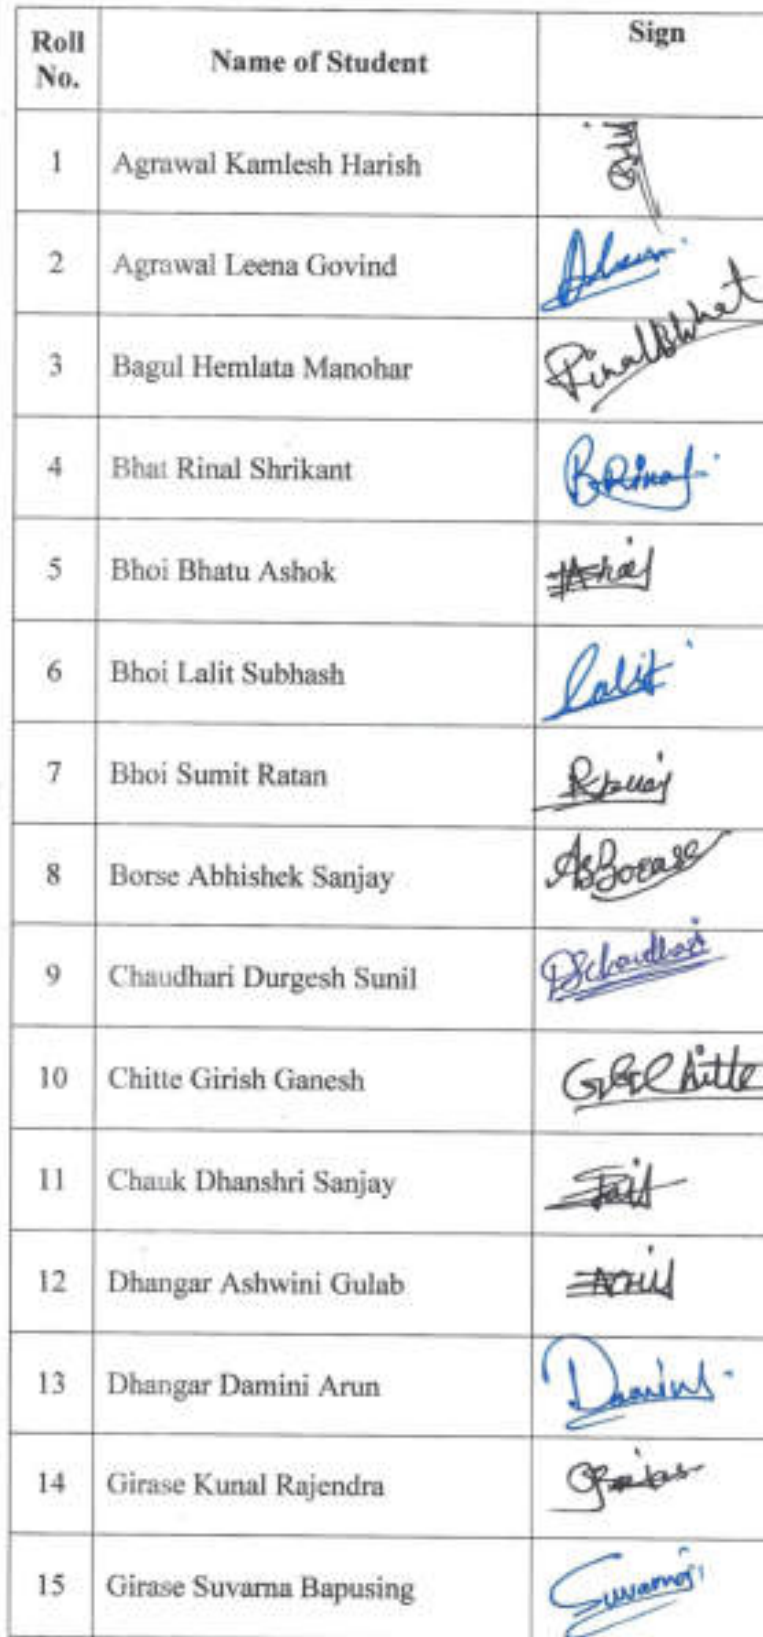 Roll No. Name of Student Sign
1 Agrawal Kamlesh Harish
2 Agrawal Leena Govind
3 Bagul Hemlata Manohar RinalBhhat
4 Bhat Rinal Shrikant BRinal
5 Bhoi Bhatu Ashok
6 Bhoi Lalit Subhash Lalit
7 Bhoi Sumit Ratan
8 Borse Abhishek Sanjay
9 Chaudhari Durgesh Sunil DSchaudhari
10 Chitte Girish Ganesh
11 Chauk Dhanshri Sanjay
12 Dhangar Ashwini Gulab
13 Dhangar Damini Arun Damini
14 Girase Kunal Rajendra
15 Girase Suvarna Bapusing Suvarna